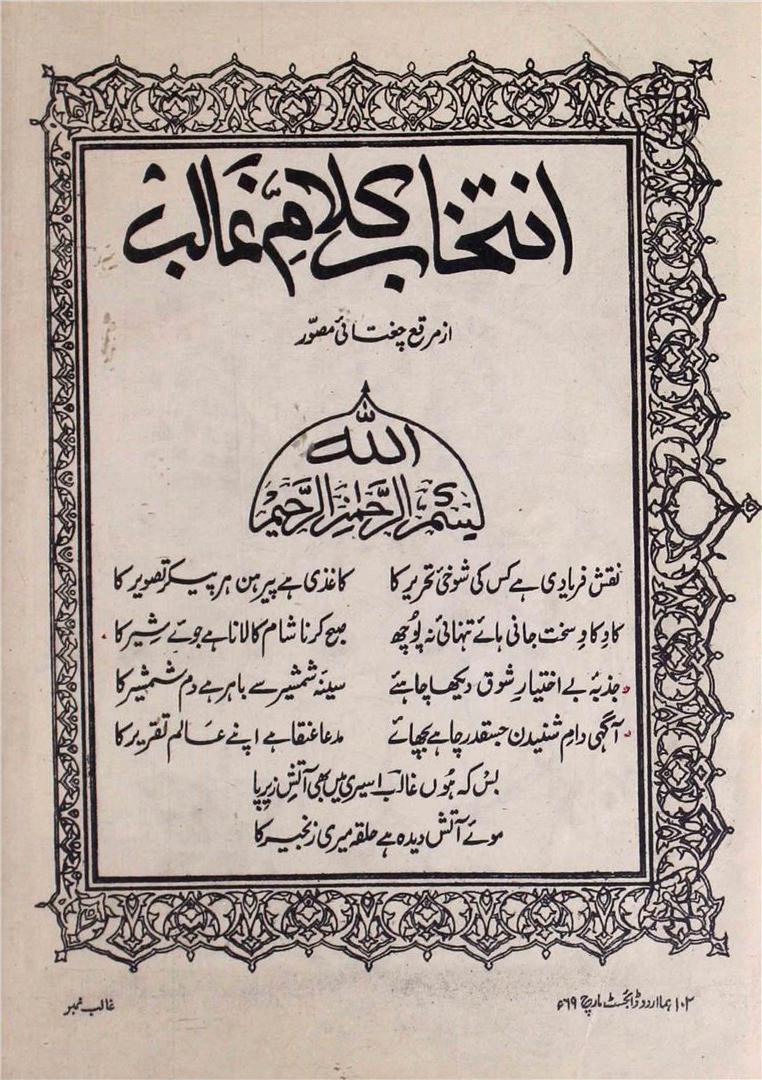 انتخاب کلامِ غالب
از مرقع چغتائی مصوّر
اللہ
بِسْمِ الرَّحْمٰنِ الرَّحِیْمِ
نقش فریادی ہے کس کی شوخیٔ تحریر کا کاغذی ہے پیرہن ہر پیکرِ تصویر کا
کاوکاوِ سخت جانی ہائے تنہائی نہ پُوچھ صبح کرنا شام کا لانا ہے جوئے شِیر کا
جذبۂ بے اختیارِ شوق دیکھا چاہئے سینۂ شمشیر سے باہر ہے دم شمشیر کا
آگہی دامِ شنیدن جسقدر چاہے بچھائے مدعا عنقا ہے اپنے عالم تقریر کا
بس کہ ہُوں غالبؔ اسیری میں بھی آتش زیرِ پا
موئے آتش دیدہ ہے حلقہ میری زنجیر کا
۱۰۲ ہما اردو ڈائجسٹ مارچ ۶۹ء غالب نمبر